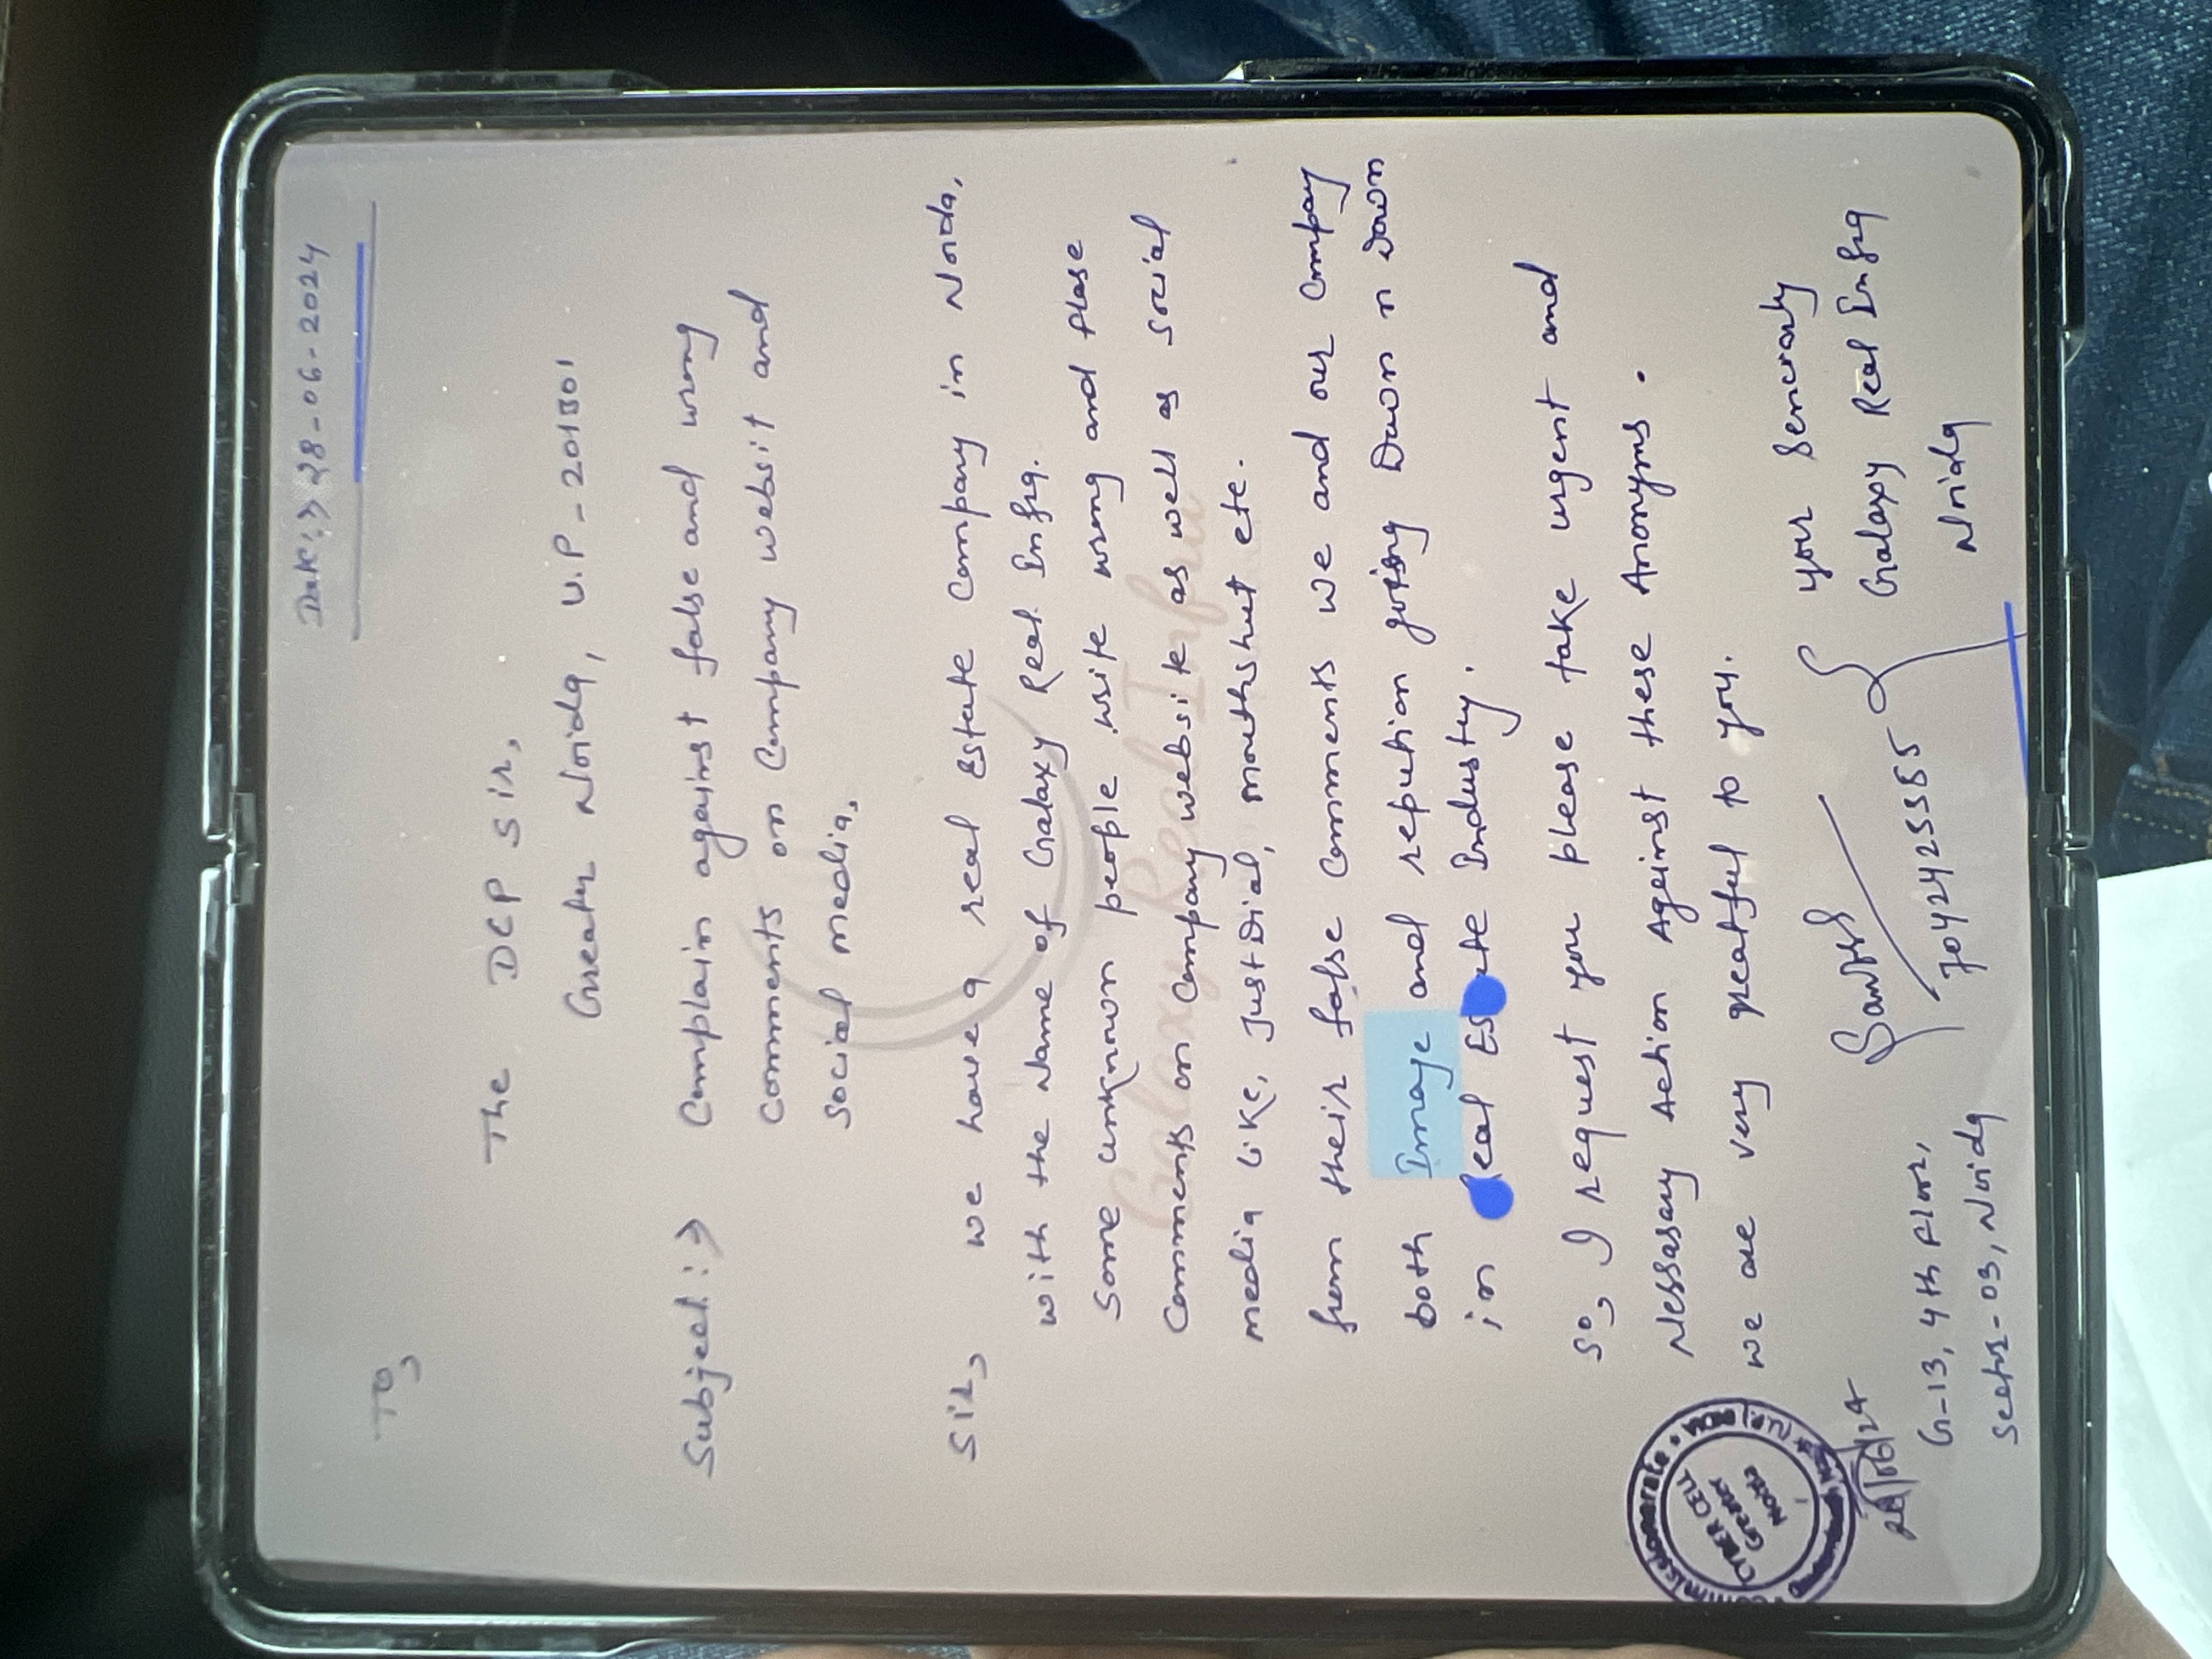 Date:> 28-06-2024
To,
The DCP Sir,
Greater Noida, U.P-201301
Subject:> Complain against false and wrong
Comments on Company websit and
social media,
Sir,
we have a real Estate Company in Noida,
with the Name of Galaxy Real Infra.
Some unknown people write wrong and flase
Comments on Company website as well as social
media like, JustDial, mouthshut etc.
from their false Comments we and our Company
both Image and repution going Down n Down
in Real Estate Industry.
So, I request you please take urgent and
Nessasary Action Ageinst these Anonyms.
we are very greatful to you.
your Sencearly
Galaxy Real Infra
Noida
7042423585
G-13, 4th Floor,
Sector-03, Noida
Galaxy Real Infra
Commissionerate
CYBER CELL
Greater
NOIDA
/06/24